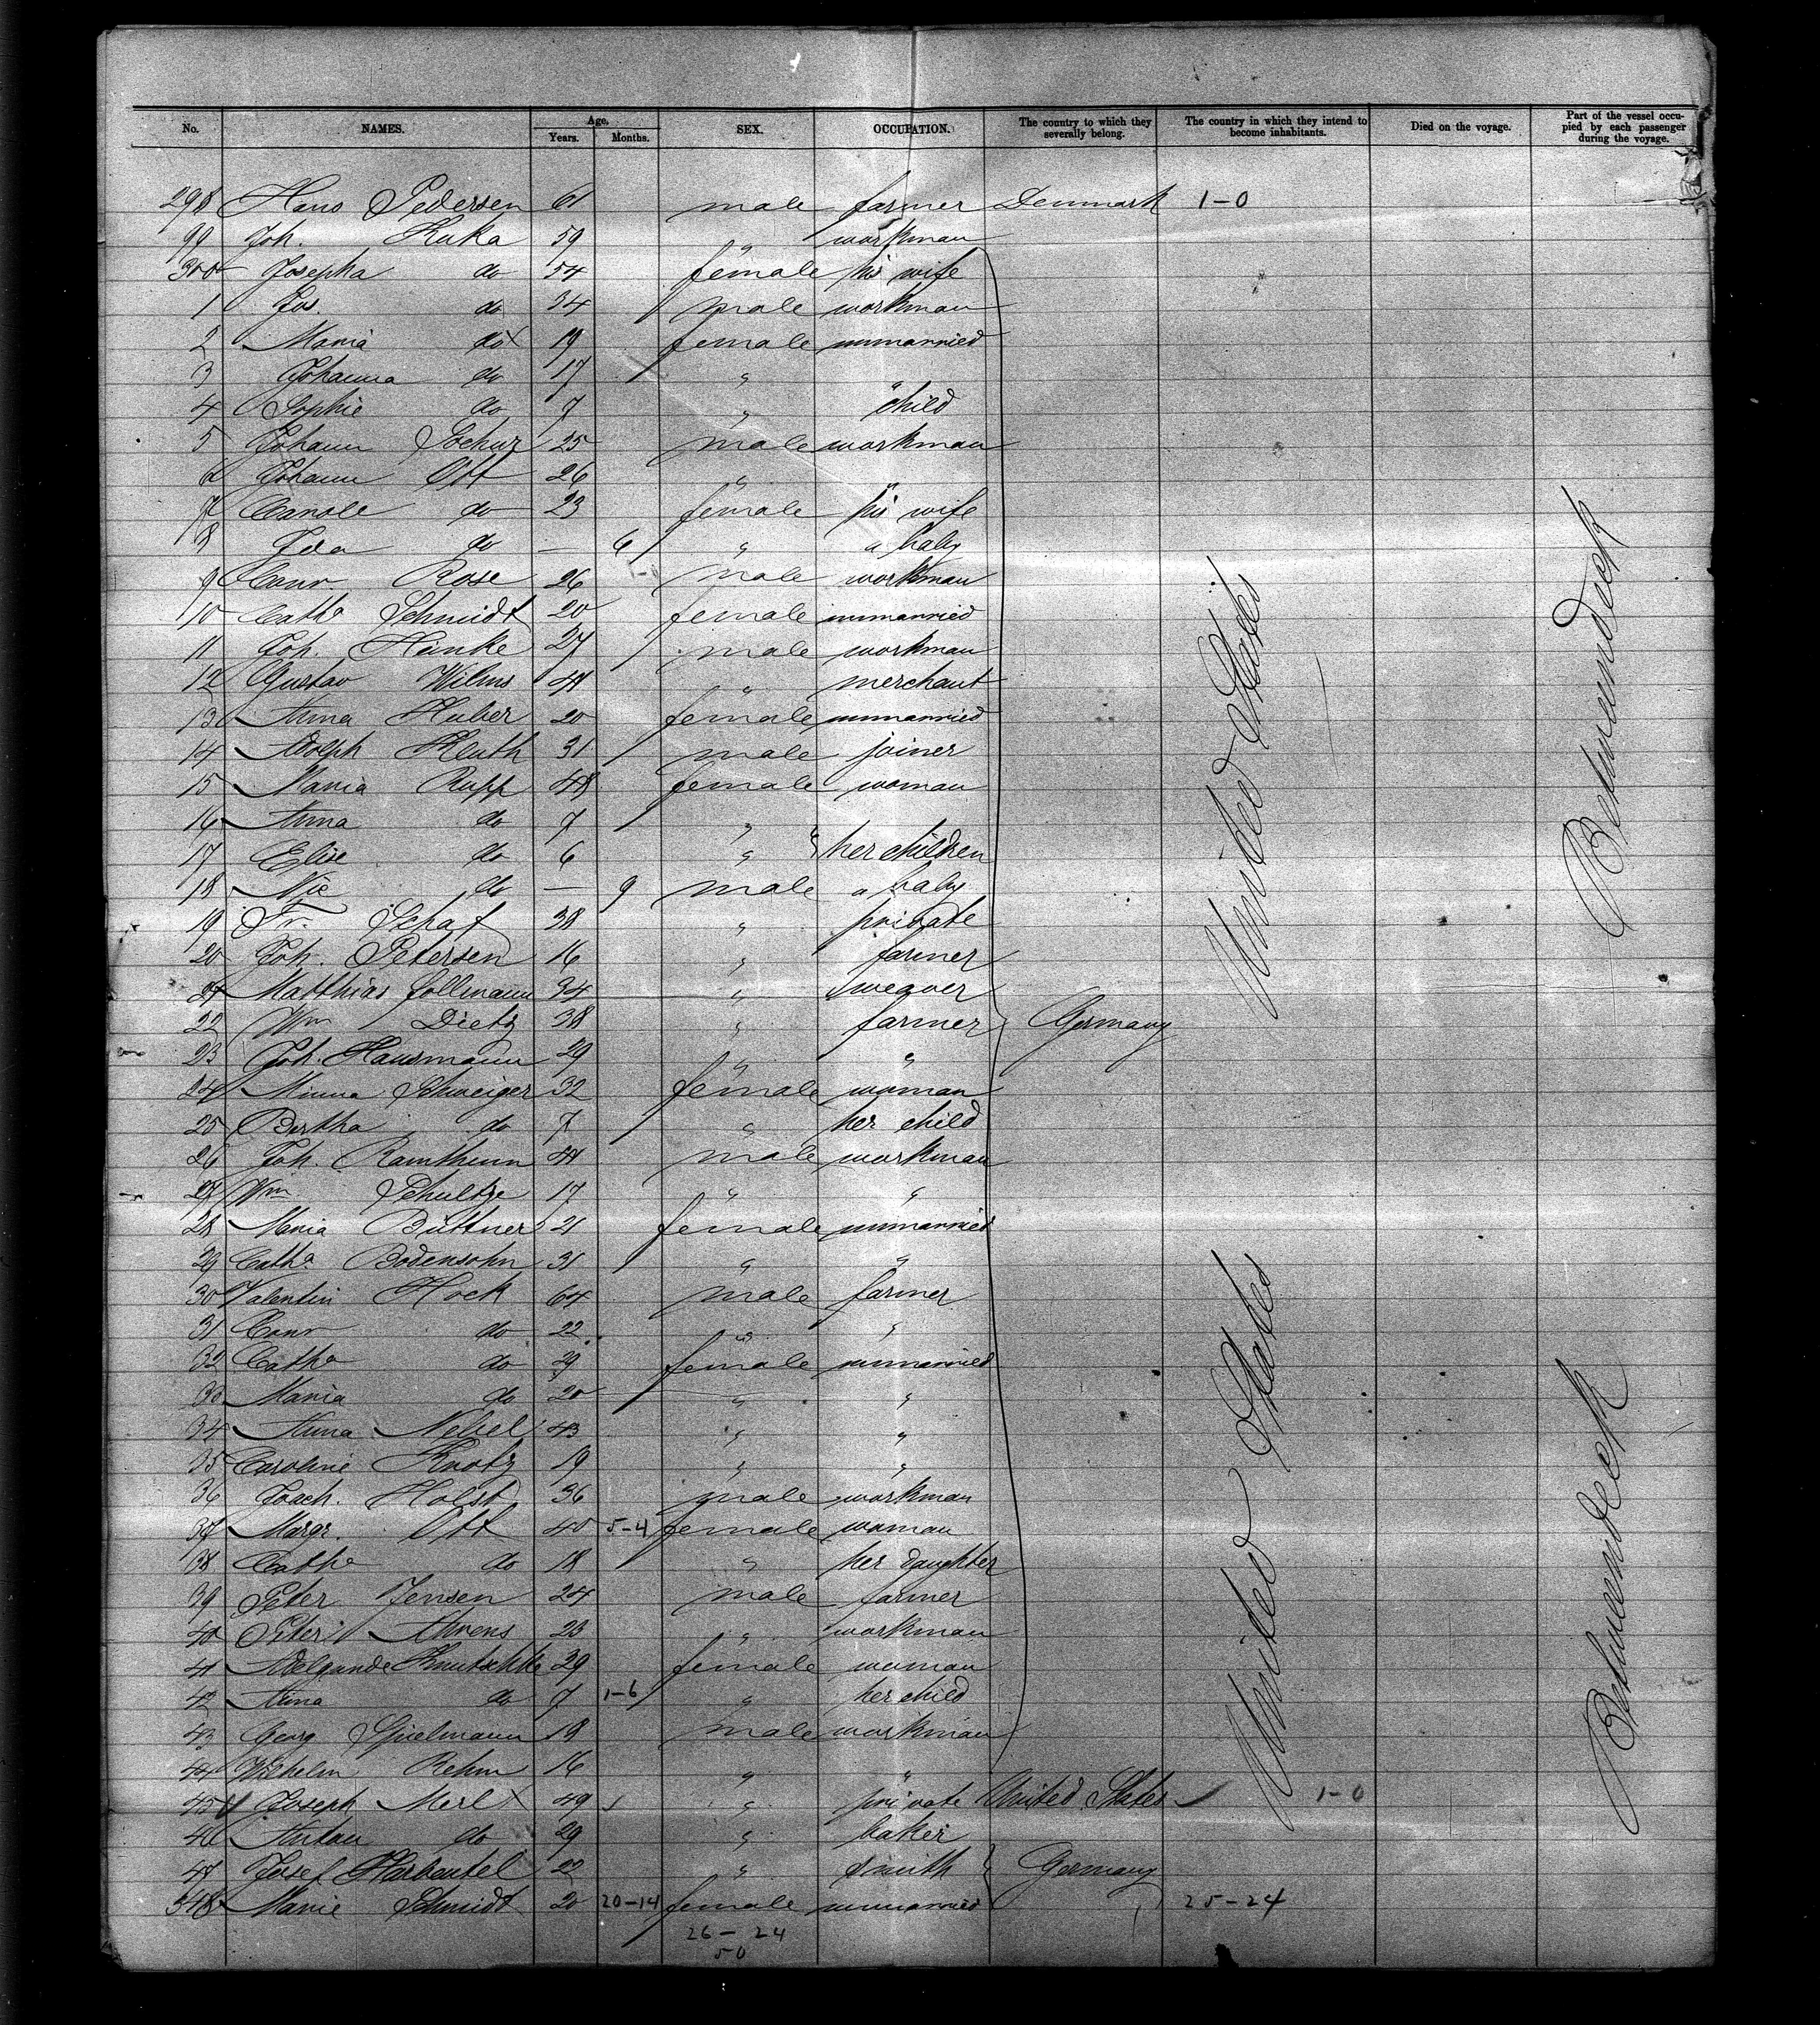 No. NAMES. Age, Years. Months. SEX. OCCUPATION. The country to which they severally belong. The country in which they intend to become inhabitants. Died on the voyage. Part of the vessel occupied by each passenger during the voyage.
298 Hans Pedersen 61 male farmer Denmark 1-0
99 Joh. Kuka 59 " workman
300 Josepha do 54 female his wife
1 Jos. do 34 male workman
2 Maria do x 19 female unmarried
3 Johanna do 17 " "
4 Sophie do 7 " child
5 Johann Sochur 25 male workman
6 Johann Ott 26 " "
7 Carole do 23 female his wife
8 Ida do — 6 " a baby
9 Conr. Rose 26 male workman
10 Catha Schmidt 20 female unmarried
11 Joh. Heinke 27 male workman
12 Gustav Wilms 44 " merchant
13 Anna Huber 20 female unmarried
14 Adolph Kluth 31 male joiner
15 Maria Rupp 48 female woman
16 Anna do 7 "
17 Elise do 6 " } her children
18 Nic do — 9 male a baby
19 Fr. Schaf 38 " private
20 Joh. Petersen 16 " farmer
21 Matthias Follmann 34 " weaver
22 Wm Dietz 38 " farmer } Germany
23 Joh. Hausmann 29 " "
24 Minna Schweiger 32 female woman
25 Bertha do 7 " her child
26 Joh. Ramthunn 44 male workman
27 Wm Schultze 17 " "
28 Maria Büttner 21 female unmarried
29 Catha Bodensohn 31 " "
30 Valentin Hock 64 male farmer
31 Conr do 22 " "
32 Catha do 29 female unmarried
33 Maria do 20 " "
34 Anna Nebel 43 " "
35 Caroline Knotz 19 " "
36 Joach. Holst 36 male workman
37 Margr. Ott 40 5-4 female woman
38 Catha do 18 " her daughter
39 Peter Jensen 24 male farmer
40 Peter Ahrens 23 " workman
41 Adelgunde 29 female woman
42 Anna do 7 1-6 " her child
43 Georg Spielmann 18 male workman
44 Wilhelm Rehm 16 " "
45 Joseph Merl x 49 " private United States 1-0
46 Anton do 29 " baker
47 Josef Harbeutel 22 " smith } Germany
348 Marie Schmidt 20 20-14 female unmarried 25-24
26-24
50
United States
United States
Betweendeck
Betweendeck